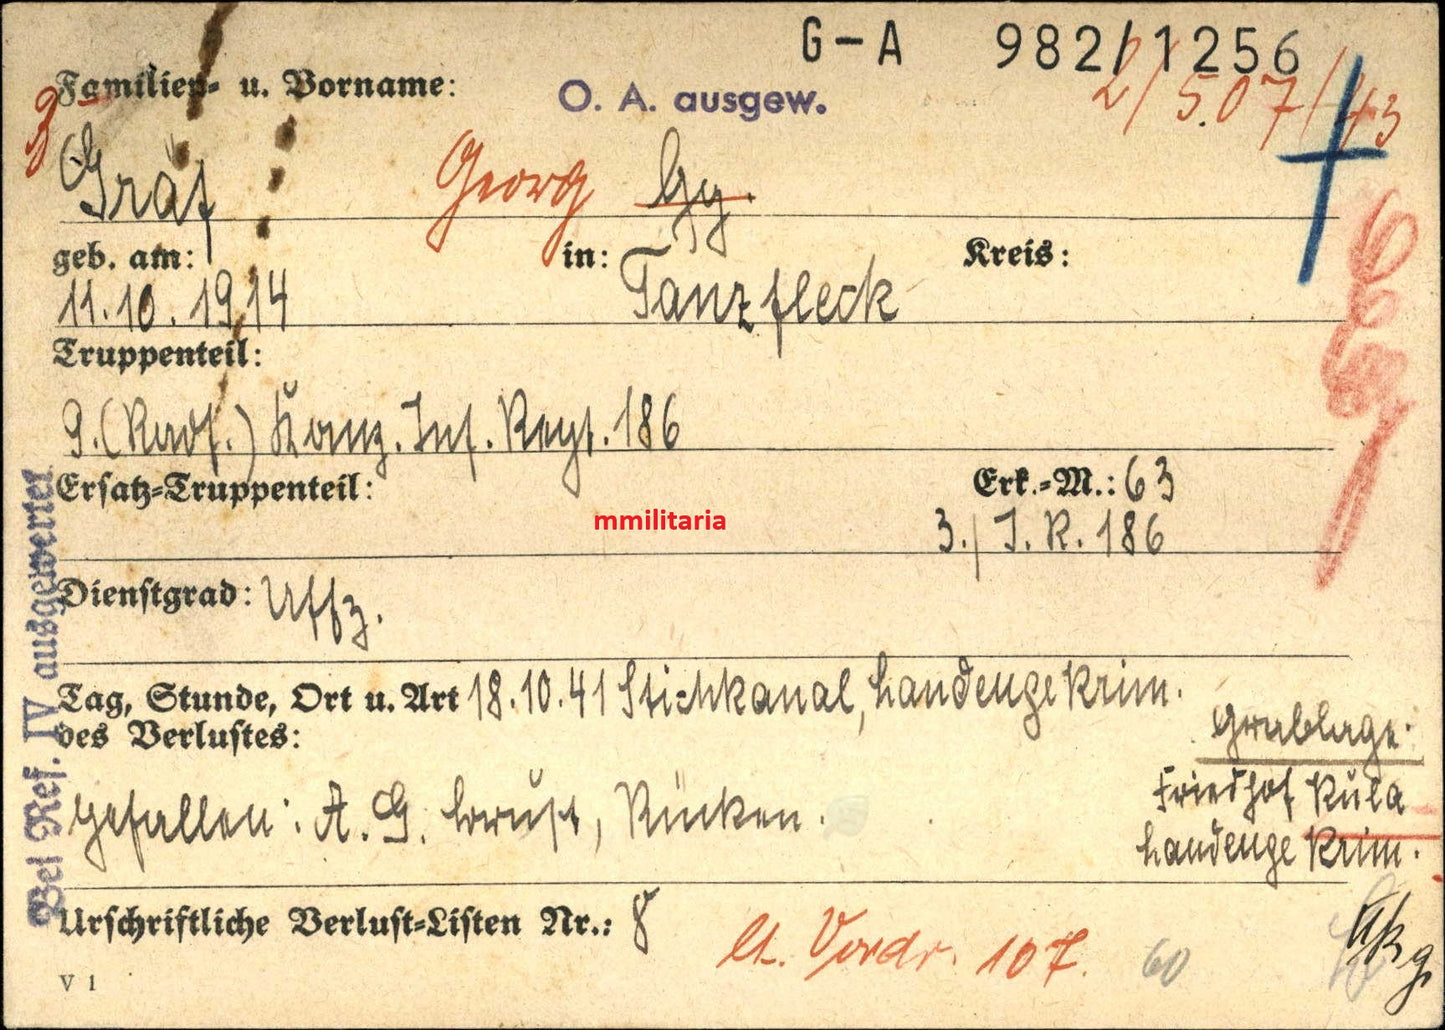 G-A 982/1256
2/507/43
Familien- u. Vorname:
O. A. ausgew.
3
Gräf Georg Gg.
geb. am: in: Kreis:
11.10.1914 Tanzfleck
Truppenteil:
9.(Radf.) Komp. Inf. Regt. 186
Ersatz-Truppenteil: Erk.-M.: 63
mmilitaria
3./ I. R. 186
Dienstgrad: Uffz.
Tag, Stunde, Ort u. Art 18.10.41 Stichkanal, Landenge Krim.
des Verlustes:
Grablage:
gefallen: A. G. Brust, Rücken.
Friedhof Kula
Landenge Krim.
Urschriftliche Verlust-Listen Nr.: 8
lt. Vordr. 107. 60
V 1
Bei Ref. IV ausgewertet